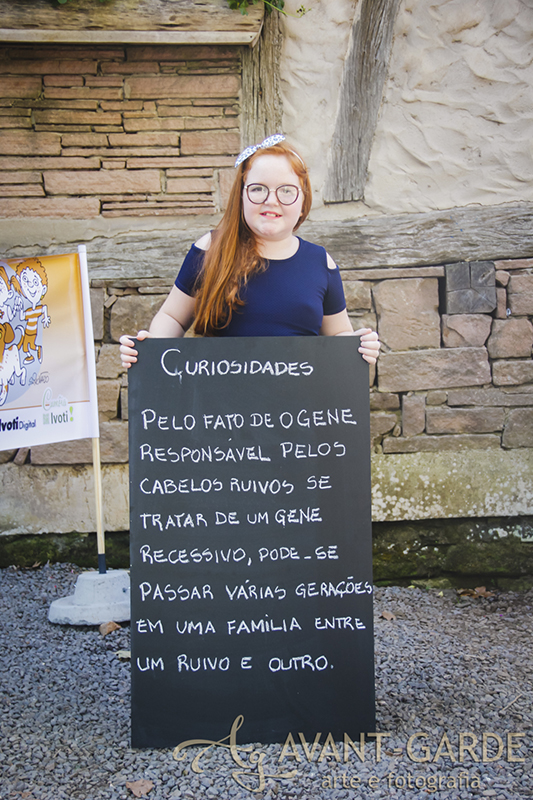 CURIOSIDADES
PELO FATO DE O GENE
RESPONSÁVEL PELOS
CABELOS RUIVOS SE
TRATAR DE UM GENE
RECESSIVO, PODE-SE
PASSAR VÁRIAS GERAÇÕES
EM UMA FAMÍLIA ENTRE
UM RUIVO E OUTRO.
Ivoti Digital
Ivoti
AVANT-GARDE
arte e fotografia